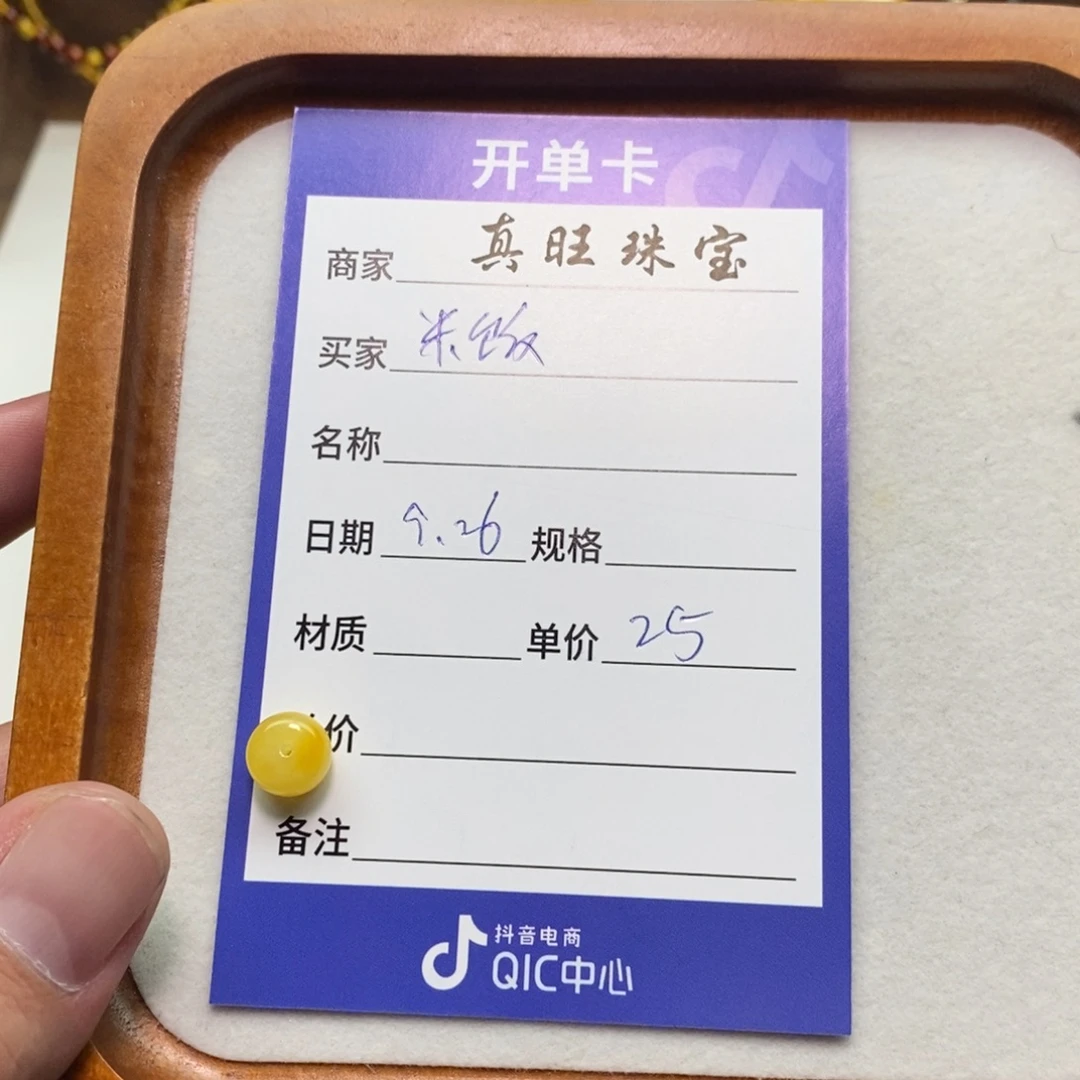 开单卡
商家 真旺珠宝
买家 米饭
名称
日期 9.26 规格
材质 单价 25
价
备注
抖音电商
QIC中心